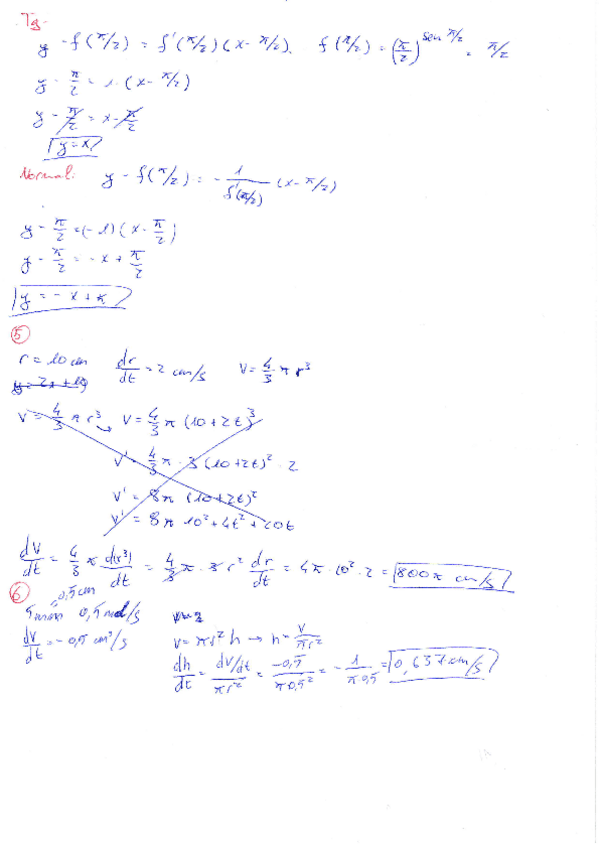 Tg.
y - f(π/2) = f'(π/2)(x - π/2). f(π/2) = (π/2)^sen π/2 = π/2
y - π/2 = 1·(x - π/2)
y - π/2 = x - π/2
y = x
Normal: y - f(π/2) = - 1/f'(π/2) (x - π/2)
y - π/2 = (-1)(x - π/2)
y - π/2 = -x + π/2
y = -x + π
5
r = 10 cm dr/dt = 2 cm/s V = 4/3 π r³
V = 4/3 π r³ → V = 4/3 π (10 + 2t)³
V' = 4/3 π · 3 (10 + 2t)² · 2
V' = 8π (10 + 2t)²
V' = 8π 10² + 4t² + 20t
dV/dt = 4/3 π d(r³)/dt = 4/3 π · 3 r² dr/dt = 4π · 10² · 2 = 800π cm/s
6
0,5cm
5mm 0,5 ml/s
dv/dt = -0,5 cm³/s V = πr² h → h = V/πr²
dh/dt = dV/dt / πr² = -0,5 / π0,5² = - 1/π0,5 = 0,637 cm/s